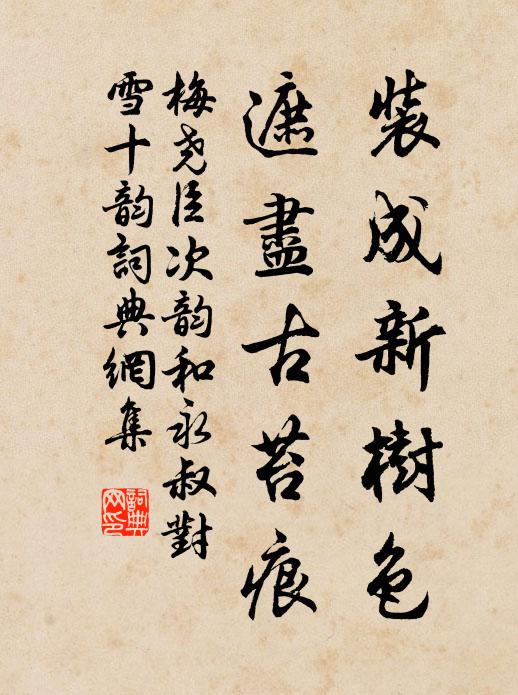 裝成新樹色
遮盡古苔痕
梅尧臣次韵和永叔對
雪十韵詞典網集
詞典網印